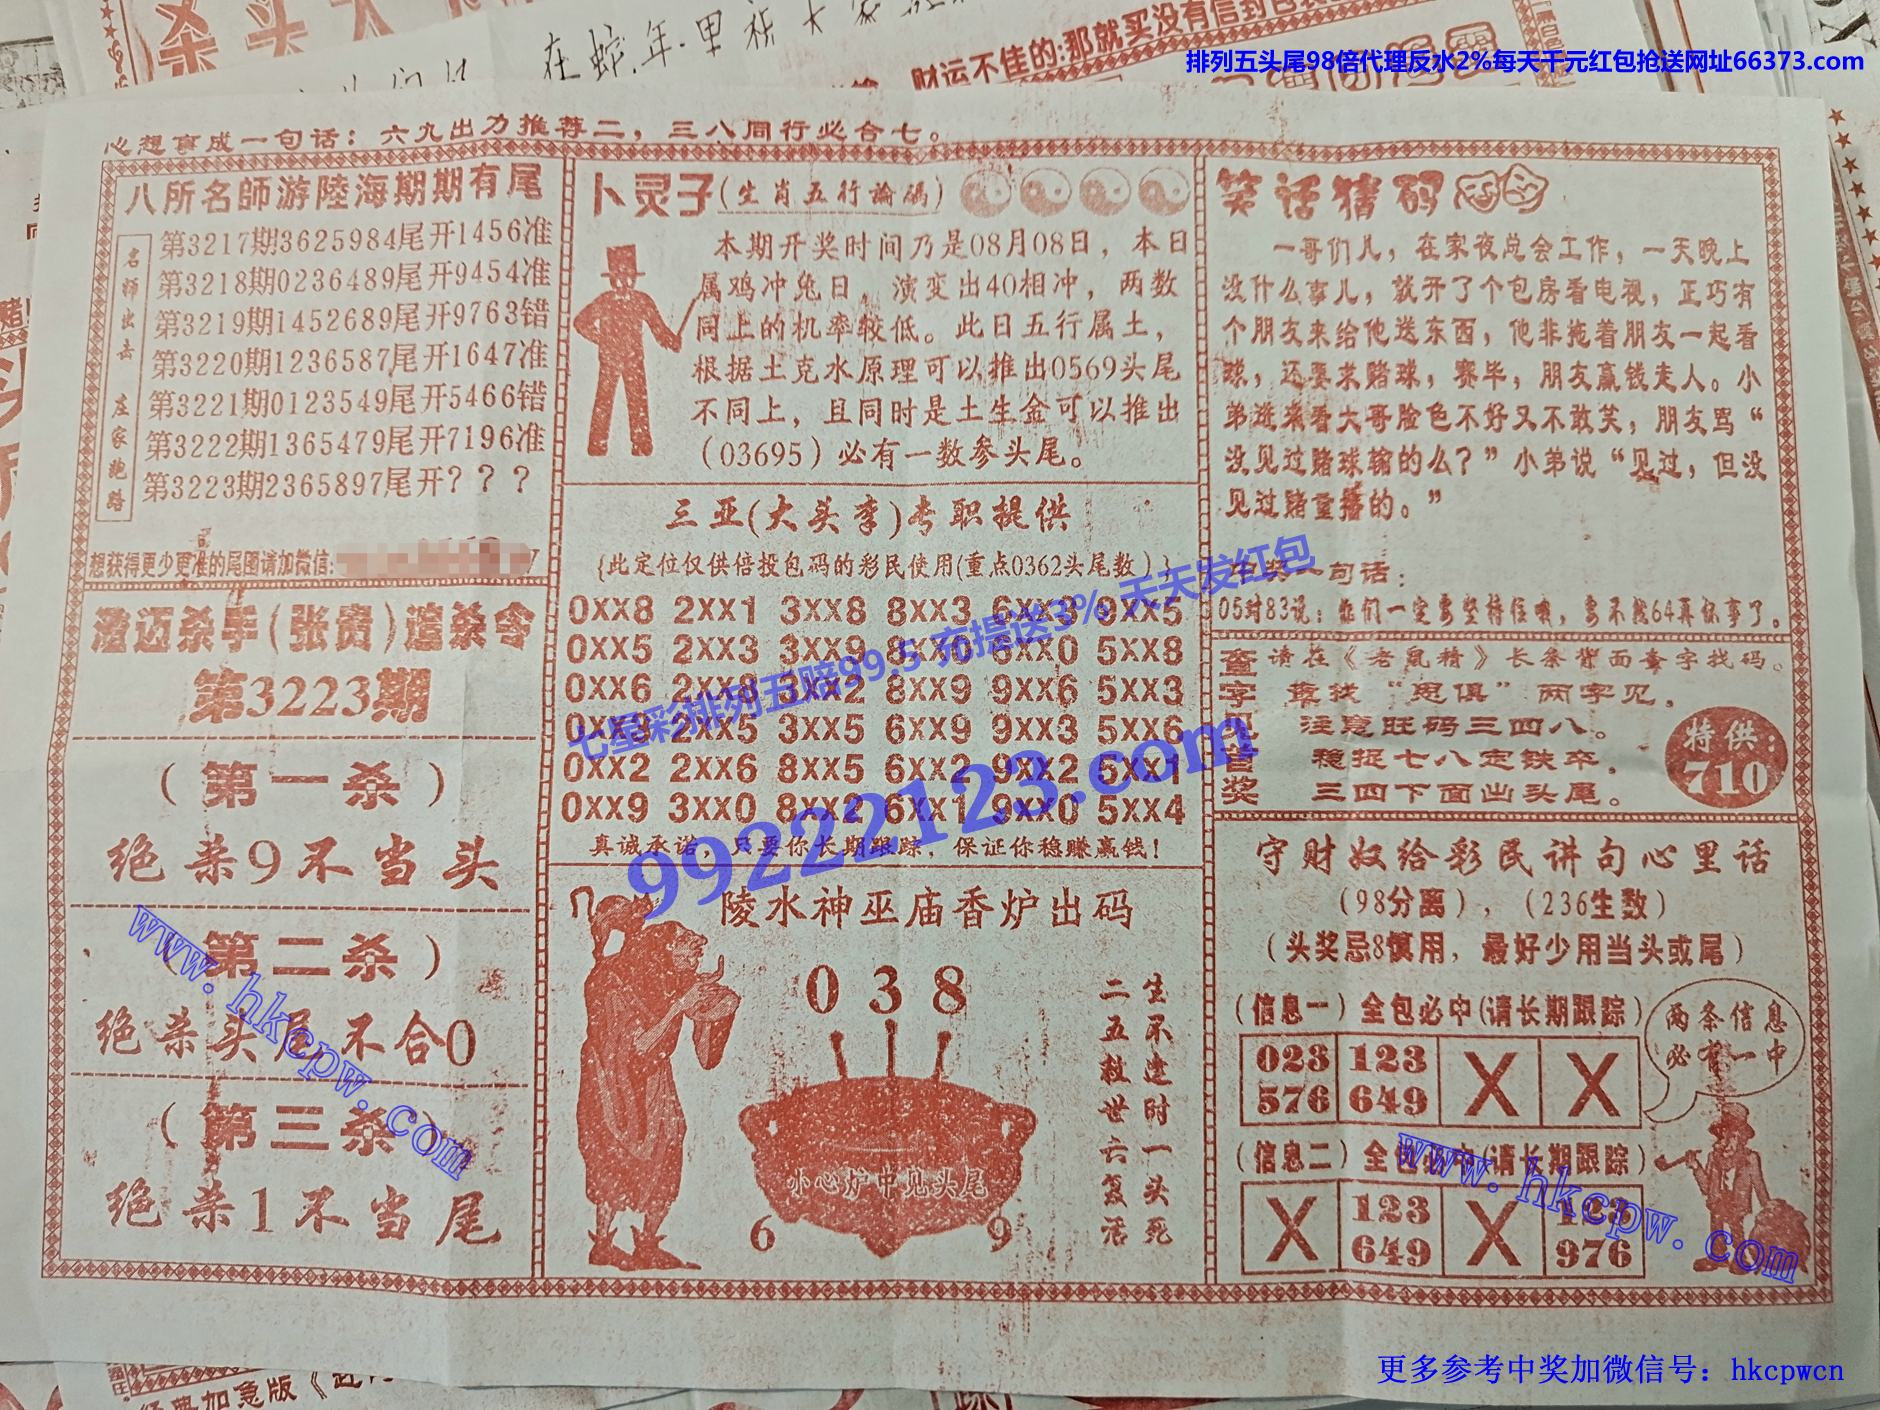 在蛇年里祝大家
财运不佳的:那就买没有信封包装
排列五头尾98倍代理反水2%每天千元红包抢送网址66373.com
心想事成一句话：六九出力推荐二，三八同行必合七。
八所名師游陸海期期有尾
名师出击 庄家跑路
第3217期3625984尾开1456准
第3218期0236489尾开9454准
第3219期1452689尾开9763错
第3220期1236587尾开1647准
第3221期0123549尾开5466错
第3222期1365479尾开7196准
第3223期2365897尾开？？？
想获得更少更准的尾图请加微信:
澄迈杀手(张贵)追杀令
第3223期
（第一杀）
绝杀9不当头
（第二杀）
绝杀头尾不合0
（第三杀）
绝杀1不当尾
卜灵子(生肖五行論碼)
本期开奖时间乃是08月08日，本日
属鸡冲兔日，演变出40相冲，两数
同上的机率较低。此日五行属土，
根据土克水原理可以推出0569头尾
不同上，且同时是土生金可以推出
（03695）必有一数参头尾。
三亚(大头李)专职提供
{此定位仅供倍投包码的彩民使用(重点0362头尾数）}
0XX8 2XX1 3XX8 8XX3 6XX3 9XX5
0XX5 2XX3 3XX9 8XX0 6XX0 5XX8
0XX6 2XX8 3XX2 8XX9 9XX6 5XX3
0XX3 2XX5 3XX5 6XX9 9XX3 5XX6
0XX2 2XX6 8XX5 6XX2 9XX2 5XX1
0XX9 3XX0 8XX2 6XX1 9XX0 5XX4
真诚承诺，只要你长期跟踪，保证你稳赚赢钱！
七星彩排列五赔99.5 充提送3% 天天发红包
99222123.com
陵水神巫庙香炉出码
038
生不逢时一头死
二五粒世六复活
小心炉中见头尾
6 9
笑话猜码
一哥们儿，在家夜总会工作，一天晚上
没什么事儿，就开了个包房看电视，正巧有
个朋友来给他送东西，他非拖着朋友一起看
球，还要来赌球，赛毕，朋友赢钱走人。小
弟进来看大哥脸色不好又不敢笑，朋友骂“
没见过赌球输的么？”小弟说“见过，但没
见过赌重播的。”
中奖一句话：
05对83说：他们一定要坚持住哦，要不然64真坏事了。
查字见吉奖
请在《老鼠精》长条背面查字找码。
靠找“思俱”两字见，
注意旺码三四八。
稳捉七八定铁卒，
三四下面出头尾。
特供：
710
守财奴给彩民讲句心里话
（98分离），（236生数）
（头奖忌8慎用，最好少用当头或尾）
（信息一）全包必中(请长期跟踪)
023 123 X X
576 649
两条信息
必有一中
（信息二）全包必中(请长期跟踪)
X 123 X 123
649 976
www.hkcpw.com
www.hkcpw.com
更多参考中奖加微信号：hkcpwcn